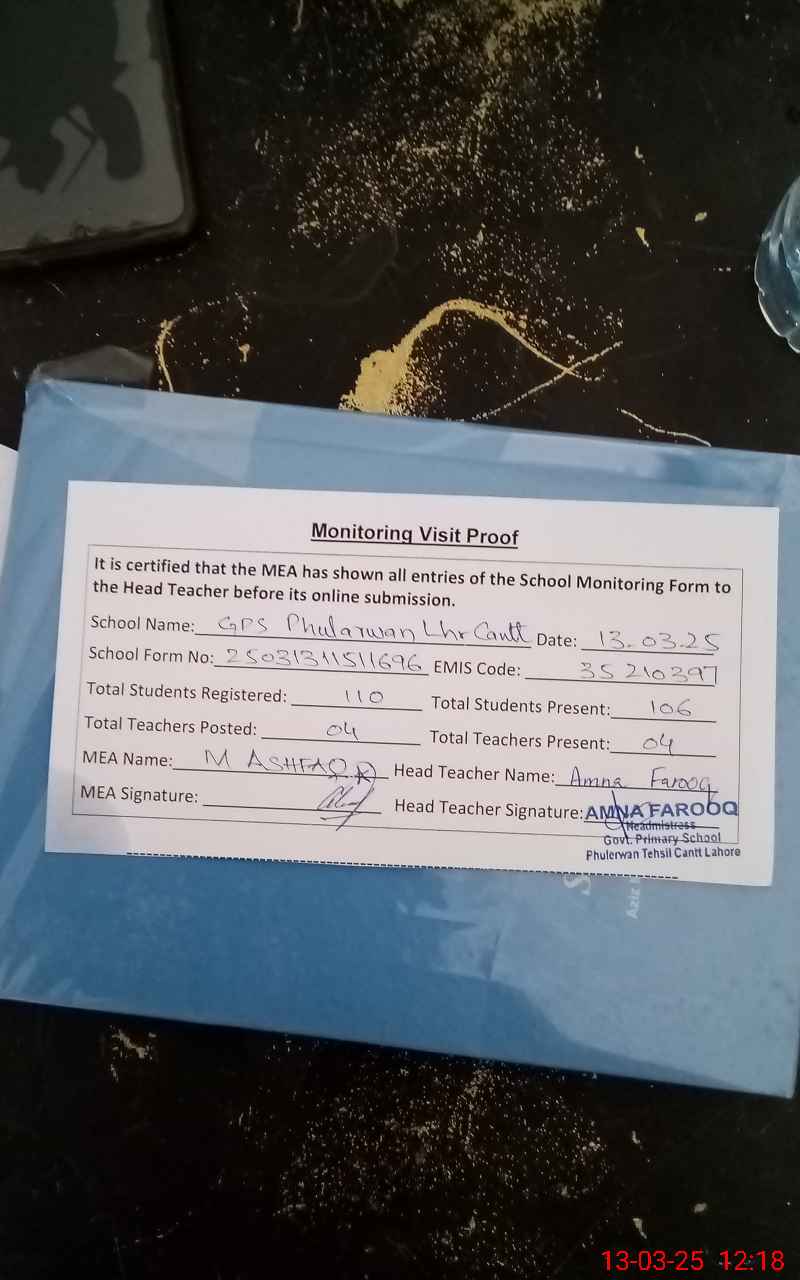 Monitoring Visit Proof
It is certified that the MEA has shown all entries of the School Monitoring Form to
the Head Teacher before its online submission.
School Name: GPS Phularwan Lhr Cantt Date: 13.03.25
School Form No: 25031311511696 EMIS Code: 35210397
Total Students Registered: 110 Total Students Present: 106
Total Teachers Posted: 04 Total Teachers Present: 04
MEA Name: M ASHFAQ Head Teacher Name: Amna Farooq
MEA Signature: Head Teacher Signature: AMNA FAROOQ
Headmistress
Govt. Primary School
Phulerwan Tehsil Cantt Lahore
Aziz
13-03-25 12:18